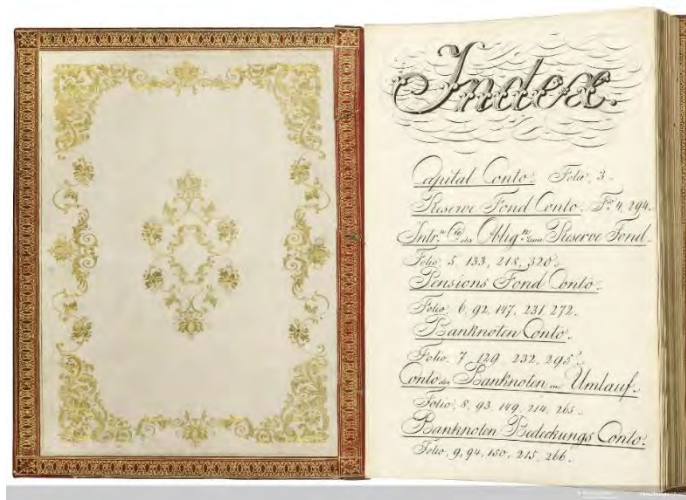 Index.
Capital Conto. Folio. 3.
Reserve Fond Conto. F. 4, 294.
Intr. Cto der Oblig.n zum Reserve Fond.
Folio. 5, 133, 218, 320.
Pensions Fond Conto.
Folio. 6, 92, 147, 231, 272.
Banknoten Conto.
Folio. 7, 129, 232, 295.
Conto der Banknoten im Umlauf.
Folio. 8, 93, 149, 214, 265.
Banknoten Bedeckungs Conto.
Folio. 9, 94, 150, 215, 266.